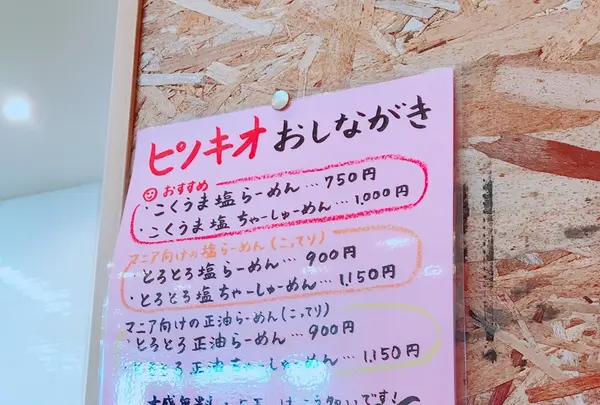 ピノキオ おしながき
おすすめ
・こくうま塩らーめん…750円
・こくうま塩ちゃーしゅーめん…1,000円
マニア向けの塩らーめん(こってり)
・とろとろ塩らーめん…900円
・とろとろ塩ちゃーしゅーめん…1,150円
マニア向けの正油らーめん(こってり)
・とろとろ正油らーめん…900円
・とろとろ正油ちゃーしゅーめん…1,150円
大盛無料
です!